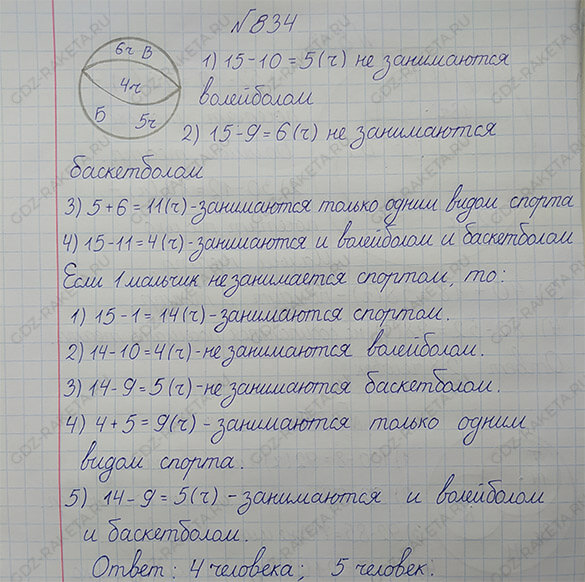 №834
6ч В
4ч
Б 5ч
1) 15-10=5(ч) не занимаются
волейболом
2) 15-9=6(ч) не занимаются
баскетболом
3) 5+6=11(ч)-занимаются только одним видом спорта
4) 15-11=4(ч)-занимаются и волейболом и баскетболом
Если 1 мальчик не занимается спортом, то:
1) 15-1=14(ч)-занимаются спортом.
2) 14-10=4(ч)-не занимаются волейболом.
3) 14-9=5(ч)-не занимаются баскетболом.
4) 4+5=9(ч)-занимаются только одним
видом спорта.
5) 14-9=5(ч)-занимаются и волейболом
и баскетболом.
Ответ: 4 человека; 5 человек.
GDZ-RAKETA.RU